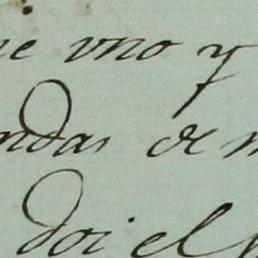 uno y
ndas de
doi el